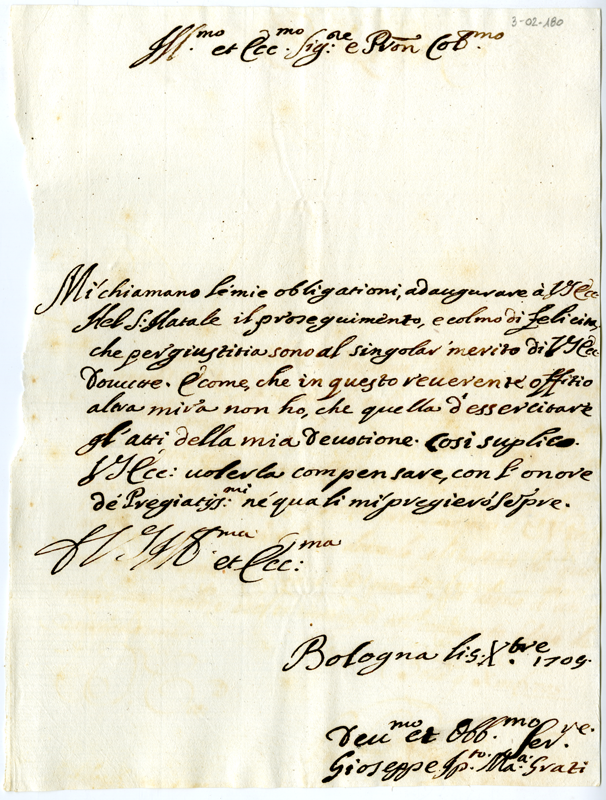 3-02-180
Ill.mo et Ecc.mo Sig.ore e Pron Col.mo
Mi chiamano le mie obligationi, ad augurare à V Ecc
Nel S: Natale il proseguimento, e colmo di felicita,
che per giustitia sono al singolar merito di V Ecc
Douute. E come, che in questo reuerente offitio
altra mira non ho, che quella d'essercitare
gl'atti della mia Deuotione. Cosi suplico
V Ecc: uolerla compensare, con l'onore
de Pregiatis:mi ne quali mi pregierò sepre.
D V Ill.ma et Ecc:ma
Bologna li 5 Xbre 1705
Deu.mo et Obb.mo Ser.re
Gioseppe Ip.to Ma: Grati